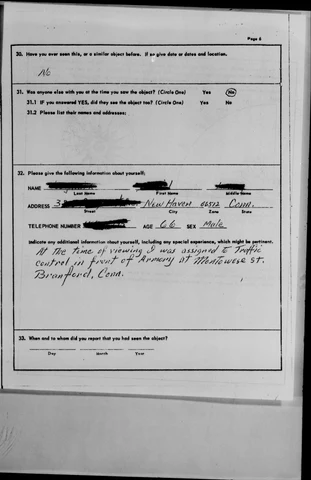 Page 6
30. Have you ever seen this, or a similar object before. If so give date or dates and location.
No
31. Was anyone else with you at the time you saw the object? (Circle One) Yes No
31.1 IF you answered YES, did they see the object too? (Circle One) Yes No
31.2 Please list their names and addresses:
32. Please give the following information about yourself:
NAME
Last Name First Name Middle Name
ADDRESS 3 New Haven 06512 Conn.
Street City Zone State
TELEPHONE NUMBER AGE 66 SEX Male
Indicate any additional information about yourself, including any special experience, which might be pertinent.
At the time of viewing I was assigned to Traffic
control in front of Armory at Montowese St.
Branford, Conn.
33. When and to whom did you report that you had seen the object?
Day Month Year